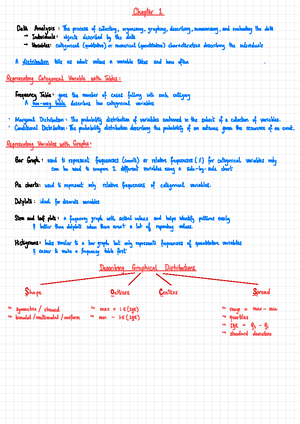 Chapter 1
Data Analysis : The process of collecting, organising, graphing, describing, summarising, and evaluating the data
→ Individuals : objects described by the data
→ Variables : categorical (qualitative) or numerical (quantitative) characteristics describing the individuals
A distribution tells us what values a variable takes and how often
Representing Categorical Variable with Tables :
Frequency Table : gives the number of cases falling into each category
A two-way table describes two categorical variables
· Marginal Distribution : The probability distribution of variables contained in the subset of a collection of variables.
· Conditional Distribution : The probability distribution describing the probability of an outcome given the occurrence of an event.
Representing Variables with Graphs :
Bar Graph : used to represent frequencies (counts) or relative frequencies (%) for categorical variables only
can be used to compare 2 different variables using a side-by-side chart
Pie charts : used to represent only relative frequencies of categorical variables.
Dotplots : ideal for discrete variables
Stem and leaf plots : a frequency graph with actual values and helps identify patterns easily
better than dotplots when there aren't a lot of repeating values
Histograms : looks similar to a bar graph but only represents frequencies of quantitative variables
easier to make a frequency table first
Describing Graphical Distributions
Shape Outliers Centers Spread
→ symmetric / skewed → max + 1.5 (IQR) → range = max - min
→ bimodal / multimodal / uniform → min - 1.5 (IQR) → quartiles
→ IQR = Q₃ - Q₁
→ standard deviation